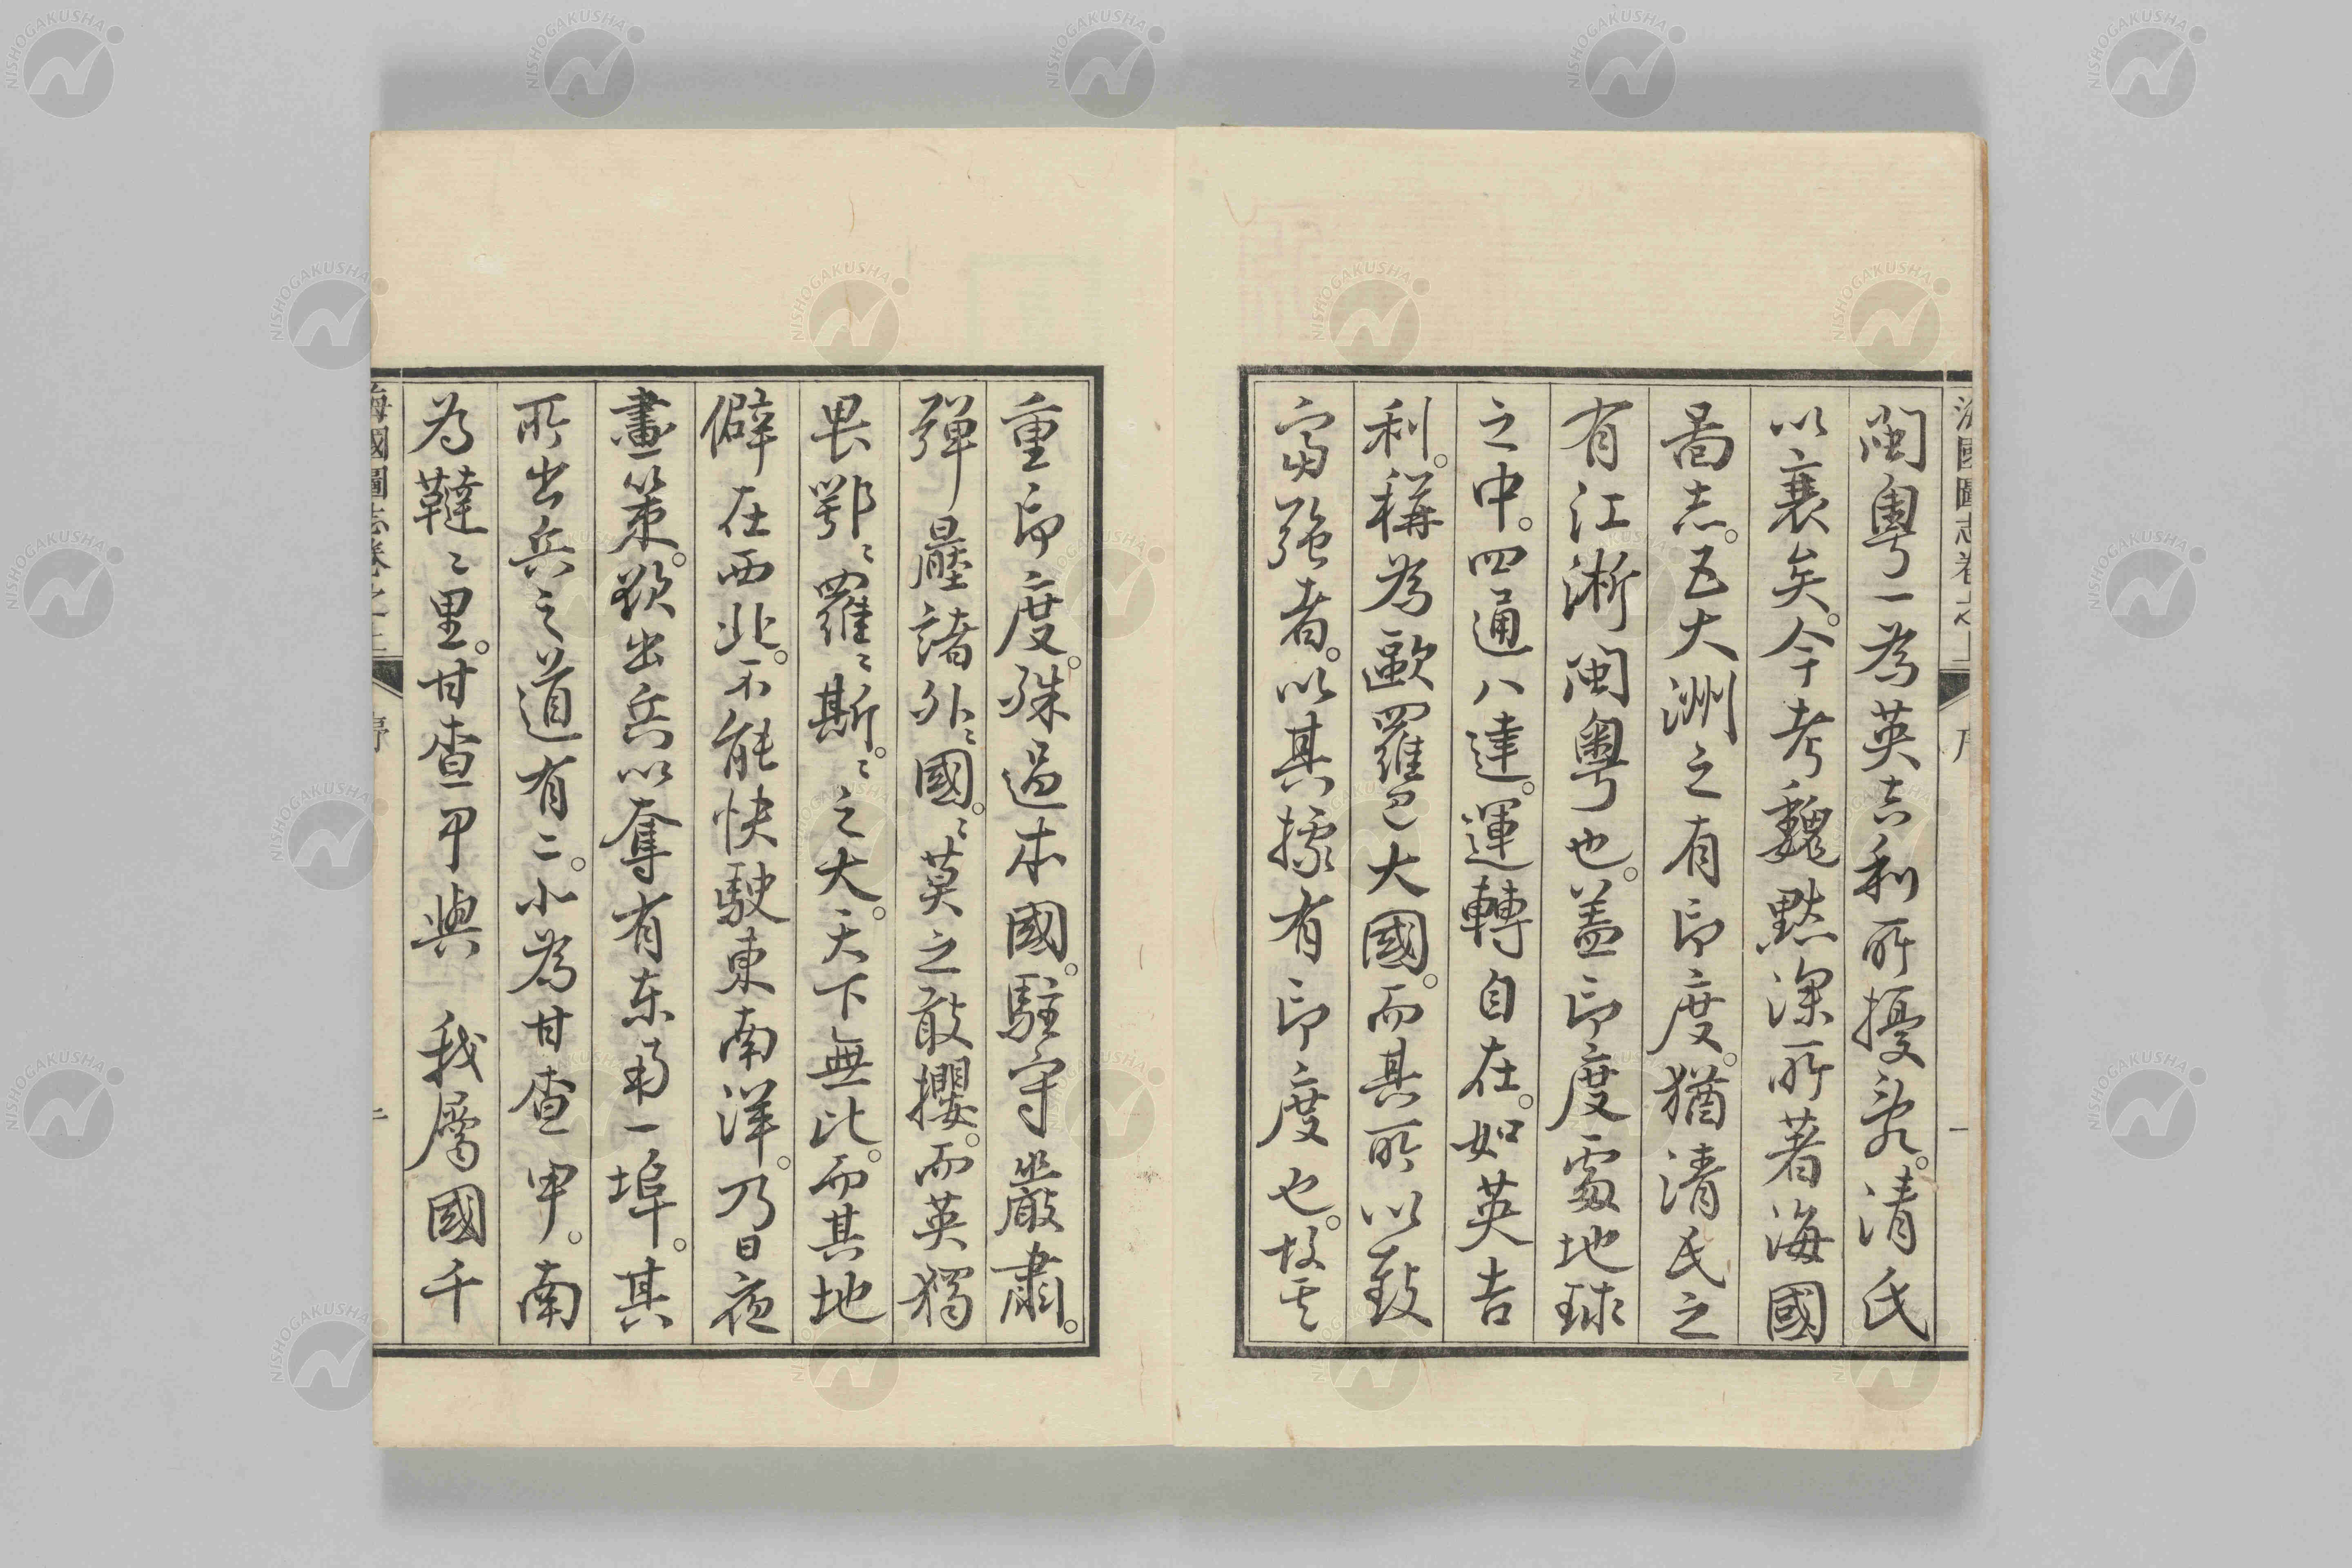 海國圖志卷之上 序 一
閩粤一為英吉利所擾亂。清氏
以衰矣。今考魏黙深所著海國
啚志。五大洲之有印度。猶清氏之
有江淅閩粤也。盖印度處地球
之中。四通八達。運轉自在。如英吉
利。稱為歐羅巴大國。而其所以致
富强者。以其據有印度也。故其
重印度。殊過本國。駐守嚴肅。
彈壓諸外〻國〻。莫之敢攖。而英獨
畏鄂〻羅〻斯〻。之大。天下無比。而其地
僻在西北。不能快駛東南洋。乃日夜
畫策。欲出兵以奪有東南一埠。其
所出兵之道有二。北為甘查甲。南
為韃〻里。甘查甲與 我屬國千
海國圖志卷之上 序
NISHOGAKUSHA